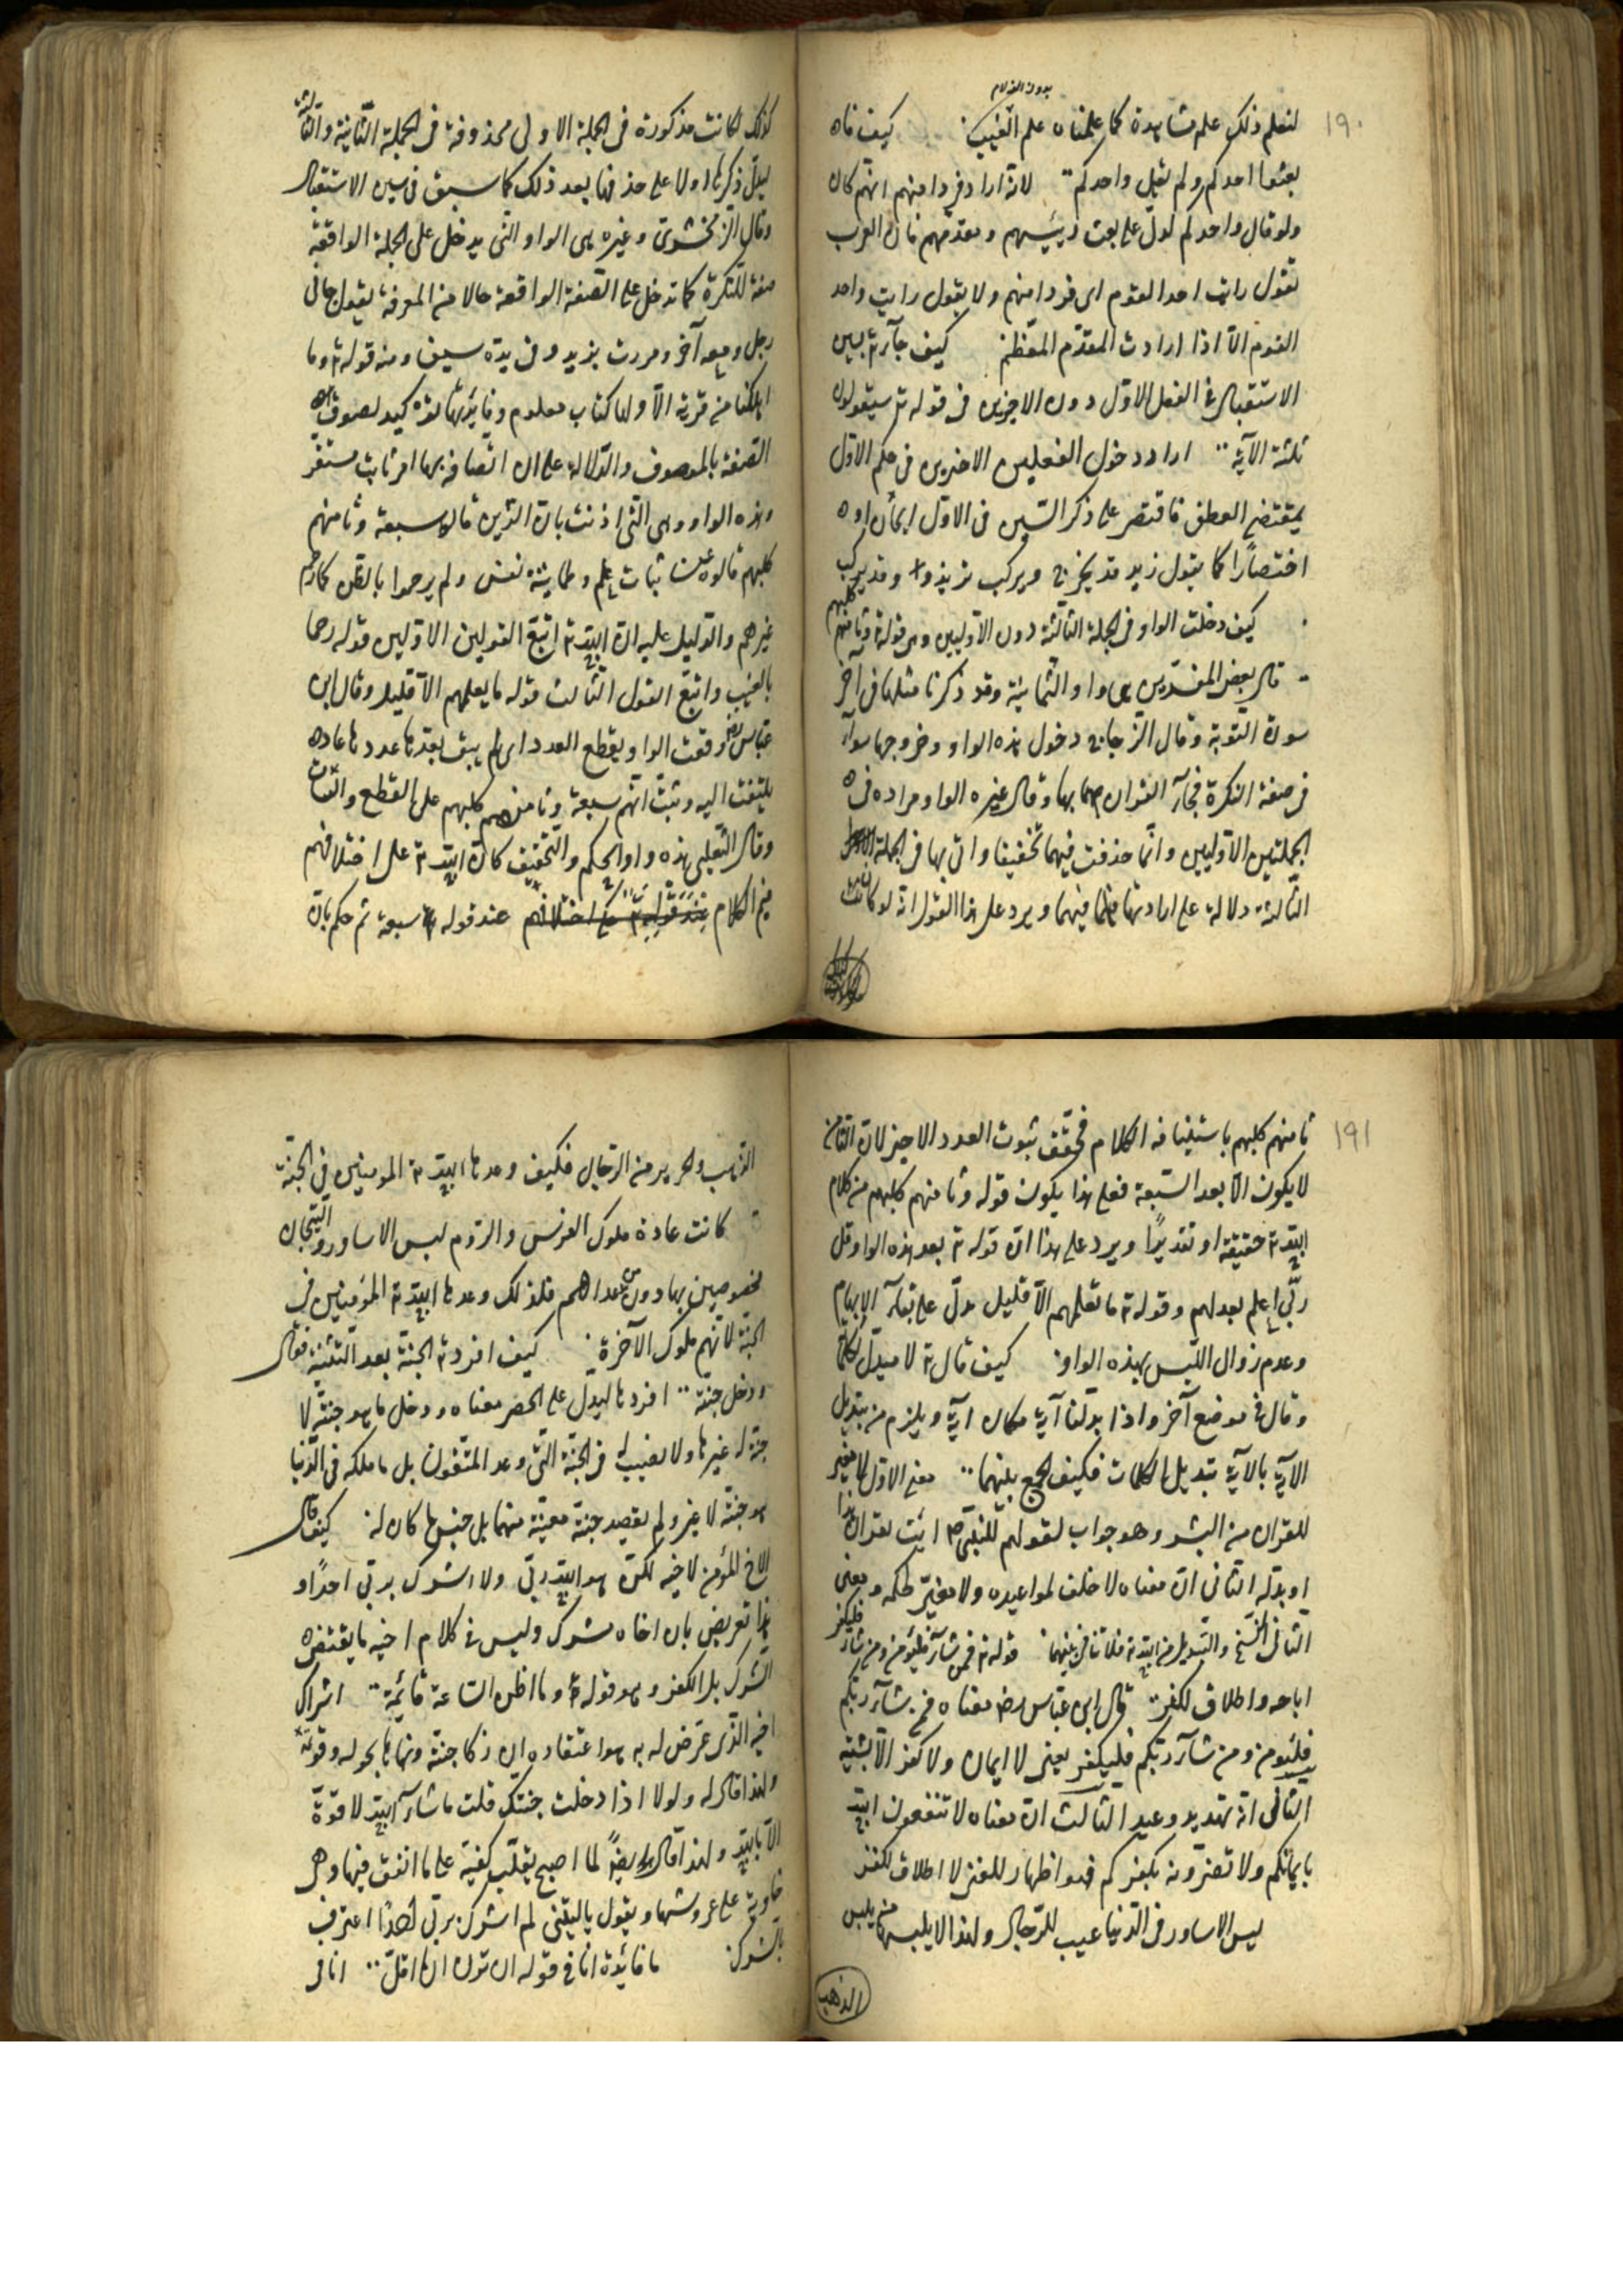 ١٩٠
لنعلم ذلك علم مشاهدة كما علمناه علم الغيب كيف قال
بعثوا احدكم ولم يقل واحدكم لانه اراد فردا منهم ايهم كان
ولو قال واحدكم لدل على بعث رييسهم ومقدمهم فان العرب
تقول رايت احد القوم اى فردا منهم ولا يقول رايت واحد
القوم الا اذا ارادت المقدم المعظم كيف جاء بسين
الاستقبال فى الفعل الاول دون الاخيرين فى قوله سيقولون
ثلثة الآية اراد دخول الفعلين الاخيرين فى حكم الاول
بمقتضى العطف فاقتصر على ذكر السين فى الاول
اختصارًا كما يقول زيد قد يخرج ويركب يريد وقد يركب
كيف دخلت الواو فى الجملة الثالثة دون الاوليين وهى قوله وثامنهم كلبهم
قال بعض المفسرين هى واو الثمانية وقد ذكرنا مثلها فى آخر
سورة التوبة وقال الزجاج دخول هذه الواو وخروجها سواء
فى صفة النكرة فجاء القرآن بهما وقال غيره الواو مراده فى
الجملتين الاوليين وانما حذفت فيهما تخفيفا واتى بها فى الجملة
الثالثة دلالة على ارادتها فيهما ويرد على هذا القول انه لو كانت
كذلك لكانت مذكورة فى الجملة الاولى محذوفة فى الجملة الثانية والثالثة
ليدل ذكرها اولا على حذفها بعد ذلك كما سبق فى سين الاستقبال
وقال الزمخشرى وغيره هى الواو التى يدخل على الجملة الواقعة
صفة للنكرة كما تدخل على الصفة الواقعة حالا من المعرفة يقول جاءنى
رجل ومعه آخر ومررت بزيد وفى يده سيف ومنه قوله وما
اهلكنا من قرية الا ولها كتاب معلوم وفايدتها توكيد لصوق
الصفة بالموصوف والدلالة على ان اتصافه بها امر ثابت مستقر
وهذه الواو وهى التى اذنت بان الذين قالوا سبعة وثامنهم
كلبهم قالوه عن ثبات علم وطمانينة نفس ولم يرجموا بالظن كما رجم
غيرهم والدليل عليه ان الله اتبع القولين الاولين قوله رجما
بالغيب واتبع القول الثالث قوله ما يعلمهم الا قليل وقال ابن
عباس وقعت الواو يقطع العدد اى لم يبق بعدها عدد عاده
يلتفت اليه وثبت انهم سبعة وثامنهم كلبهم على القطع والثبات
وقال الثعلبى هذه واو الحكم والتحقيق كان الله على اختلافهم
فتم الكلام عند قوله سبعة ثم حكم بان
١٩١
ثامنهم كلبهم باستيناف الكلام فحقق ثبوت العدد الاخير لان الثامن
لا يكون الا بعد السبعة فعلى هذا يكون قوله وثامنهم كلبهم من كلام
الله حقيقة او تقديرًا ويرد على هذا ان قوله بعد هذه الواو قل
ربى اعلم بعدتهم وقوله ما يعلمهم الا قليل يدل على بقاء الابهام
وعدم زوال اللبس بهذه الواو كيف قال لا مبدل لكلماته
وقال فى موضع آخر واذا بدلنا آية مكان آية ويلزم من تبديل
الآية بالآية تبديل الكلمات فكيف الجمع بينهما معنى الاول لا مغير
للقران من البشر وهو جواب لقولهم للنبى ص ائت بقران غير هذا
او بدله الثانى ان معناه لا خلف لمواعيده ولا مغير لحكمه ومعنى
الثانى النسخ والتبديل من الله فلا تنافى بينهما قوله فمن شاء فليؤمن ومن شاء فليكفر
اباحه واطلاق للكفر قال ابن عباس رض معناه فمن شاء ربكم
فليؤمن ومن شاء ربكم فليكفر يعنى لا ايمان ولا كفر الا بمشيته
الثانى انه تهديد ووعيد الثالث ان معناه لا تنفعون الله
بايمانكم ولا تضرونه بكفركم فهو اظهار للغنى لا اطلاق للكفر
لبس الاساور فى الدنيا عيب للرجال ولهذا لا يلبسها من يلبس
الذهب
الذهب والحرير من الرجال فكيف وعدها الله المومنين فى الجنة
كانت عادة ملوك الفرس والروم لبس الاساور والتيجان
مخصوصين بها دون من عداهم فلذلك وعدها الله المؤمنين فى
الجنة لانهم ملوك الآخرة كيف افرد الجنة بعد التثنية فقال
ودخل جنته افردها ليدل على الحصر معناه ودخل ما هو جنته لا
جنة له غيرها ولا نصيب له فى الجنة التى وعد المتقون بل ما ملكه فى الدنيا
هو جنته لا غير ولم يقصد جنة معينة منهما بل جنس ما كان له كيف قال
الاخ المؤمن لاخيه لكن هو الله ربى ولا اشرك بربى احدًا و
هذا تعريض بان اخاه مشرك وليس فى كلام اخيه ما يقتضى
الشرك بل الكفر وهو قوله وما اظن الساعة قائمة اشراك
اخيه الذى عرض له به هو اعتقاده ان زكا جنته ونماها بحوله وقوته
ولهذا قال له ولولا اذا دخلت جنتك قلت ما شاء الله لا قوة
الا بالله ولهذا قال ايضًا لما اصبح يقلب كفيه على ما انفق فيها وهى
خاوية على عروشها ويقول ياليتنى لم اشرك بربى احدًا اعترف
بالشرك ما فائدة انا فى قوله ان ترن انا اقل انا فى